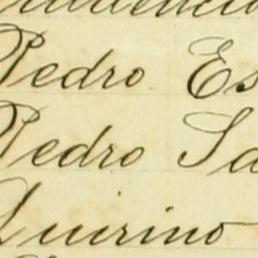 Pedro Es
Pedro Sa
Quirino